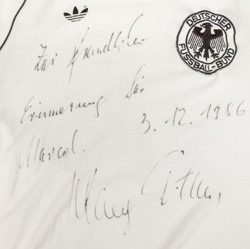 DEUTSCHER
FUSSBALL-BUND
Zur freundlichen
Erinnerung für
Marcel.
3.12.1986